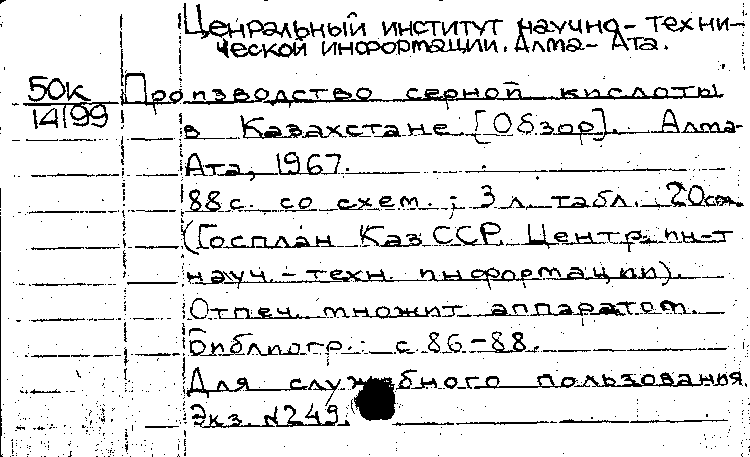 Ценральный институт научно-техни-
ческой информации. Алма-Ата.
50к
14199
Производство серной кислоты
в Казахстане [Обзор]. Алма-
Ата, 1967.
88 с. со схем.; 3 л. табл. 20см.
(Госплан КазССР. Центр. ин-т
науч.-техн. информации).
Отпеч. множит аппаратом.
Библиогр.: с. 86-88.
Для служебного пользования.
Экз. №249.